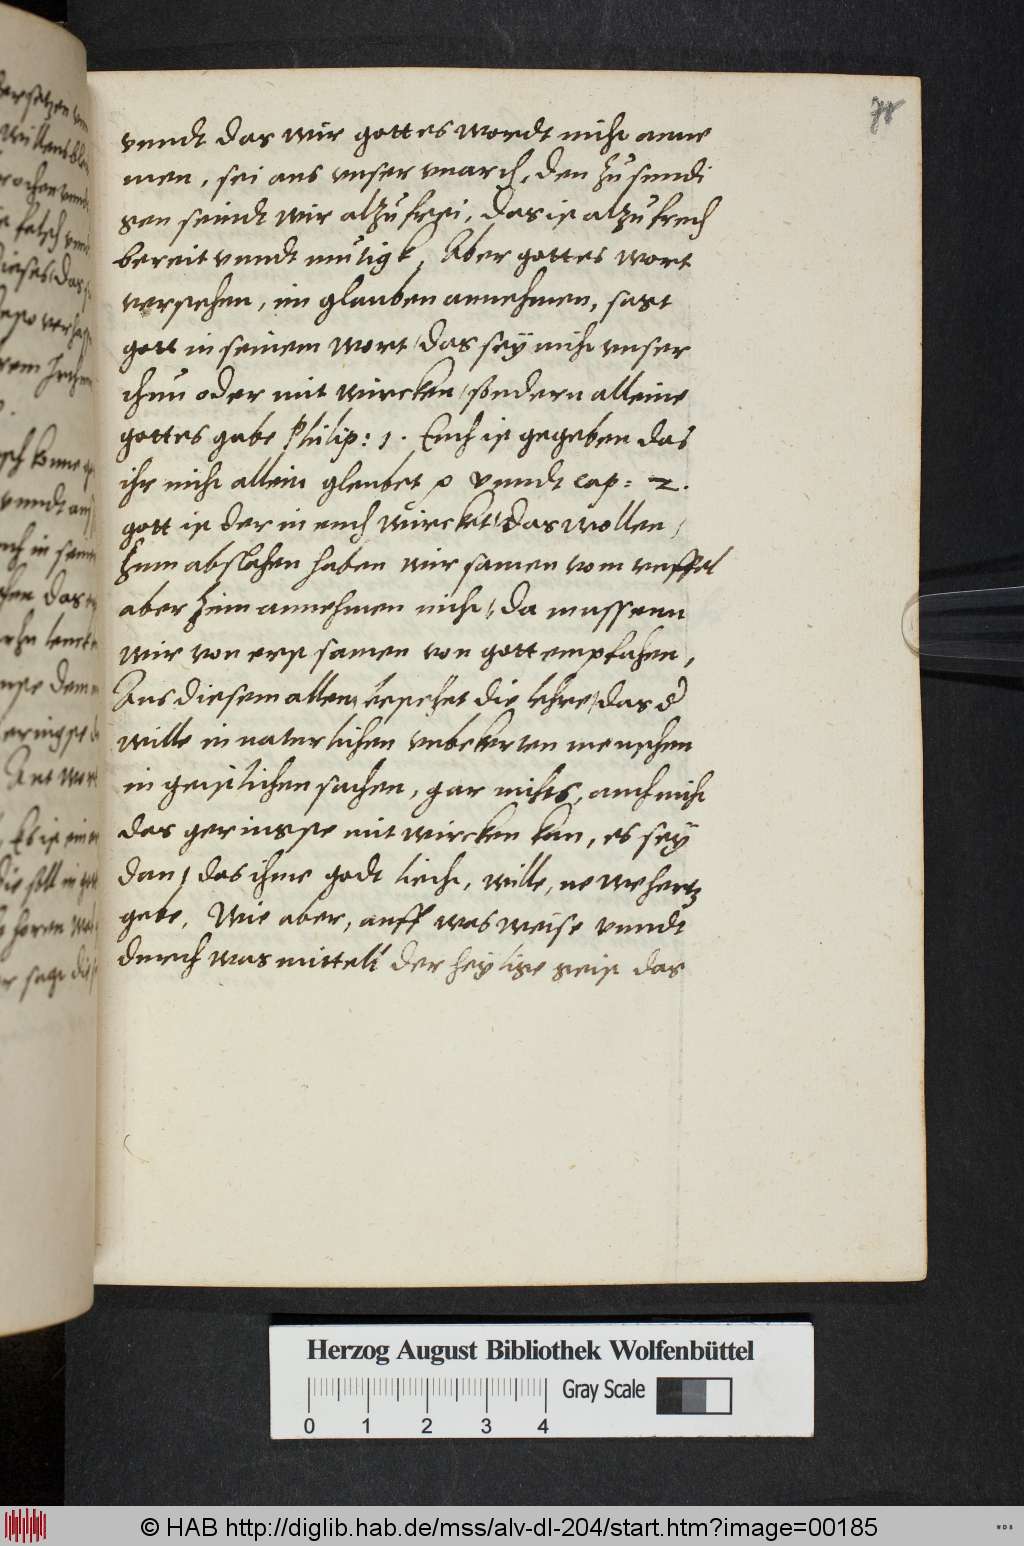 78
vnndt das wir gottes wordt nicht anne
men, sei aus vnser vnarth, den zu sundi
gen seindt wir alzu frei, das ist alzu frech
bereit vnndt mutigk, Aber gottes wort
verstehen, im glauben annehmen, sagt
gott in seinem wort / das sey nicht vnser
thun oder mit wircken / sondern alleine
gottes gabe Philip: 1. Euch ist gegeben das
ihr nicht allein gleubet vnndt cap: 2.
gott ist der in euch wircket / das wollen /
Zum abslahen haben wir samen vom teuffel
aber zum annehmen nicht, da mussenn
wir von erst samen von gott empfahen,
Aus diesem allen, bestehet die lehre / das d
wille in naturlichen vnbekerten menschen
in geistlichen sachen, gar nichts, auch nicht
das geringste mit wircken kan, es sey
dan, das ihme godt licht, wille, newe hertz
gebe. Wie aber, auff was weise vnndt
durch was mittell der heylige geist das
Herzog August Bibliothek Wolfenbüttel
0 1 2 3 4
Gray Scale
© HAB http://diglib.hab.de/mss/alv-dl-204/start.htm?image=00185